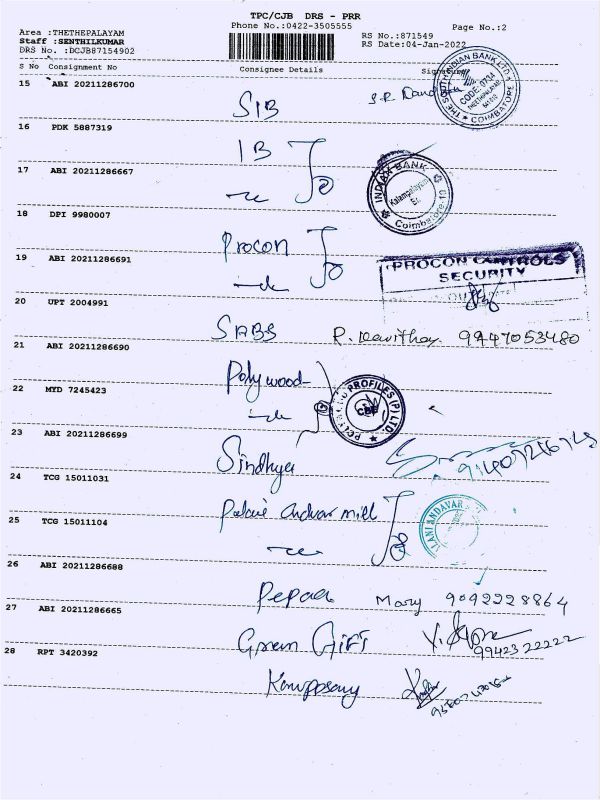 TPC/CJB DRS - PRR
Phone No.:0422-3505555
Page No.:2
Area :THETHEPALAYAM
Staff :SENTHILKUMAR
DRS No. :DCJB87154902
RS No.:871549
RS Date:04-Jan-2022
S No Consignment No Consignee Details Signature
THE SOUTH INDIAN BANK LTD
CODE 0734
COIMBATORE
15 ABI 20211286700
SIB
16 PDK 5887319
IB
17 ABI 20211286667
INDIAN BANK
Kalampalayam
Coimbatore-10
18 DPI 9980007
Procon
19 ABI 20211286691
PROCON CONTROLS
SECURITY
20 UPT 2004991
SABS R. Kavitha 9947053480
21 ABI 20211286690
Polywood
22 MYD 7245423
PROFILES (P) LTD
CBE
23 ABI 20211286699
Sindhya
24 TCG 15011031
Palani Andvar mill
25 TCG 15011104
ANDAVAR
26 ABI 20211286688
Pepaa Mary 9092228864
27 ABI 20211286665
Green Gift
9942322222
28 RPT 3420392